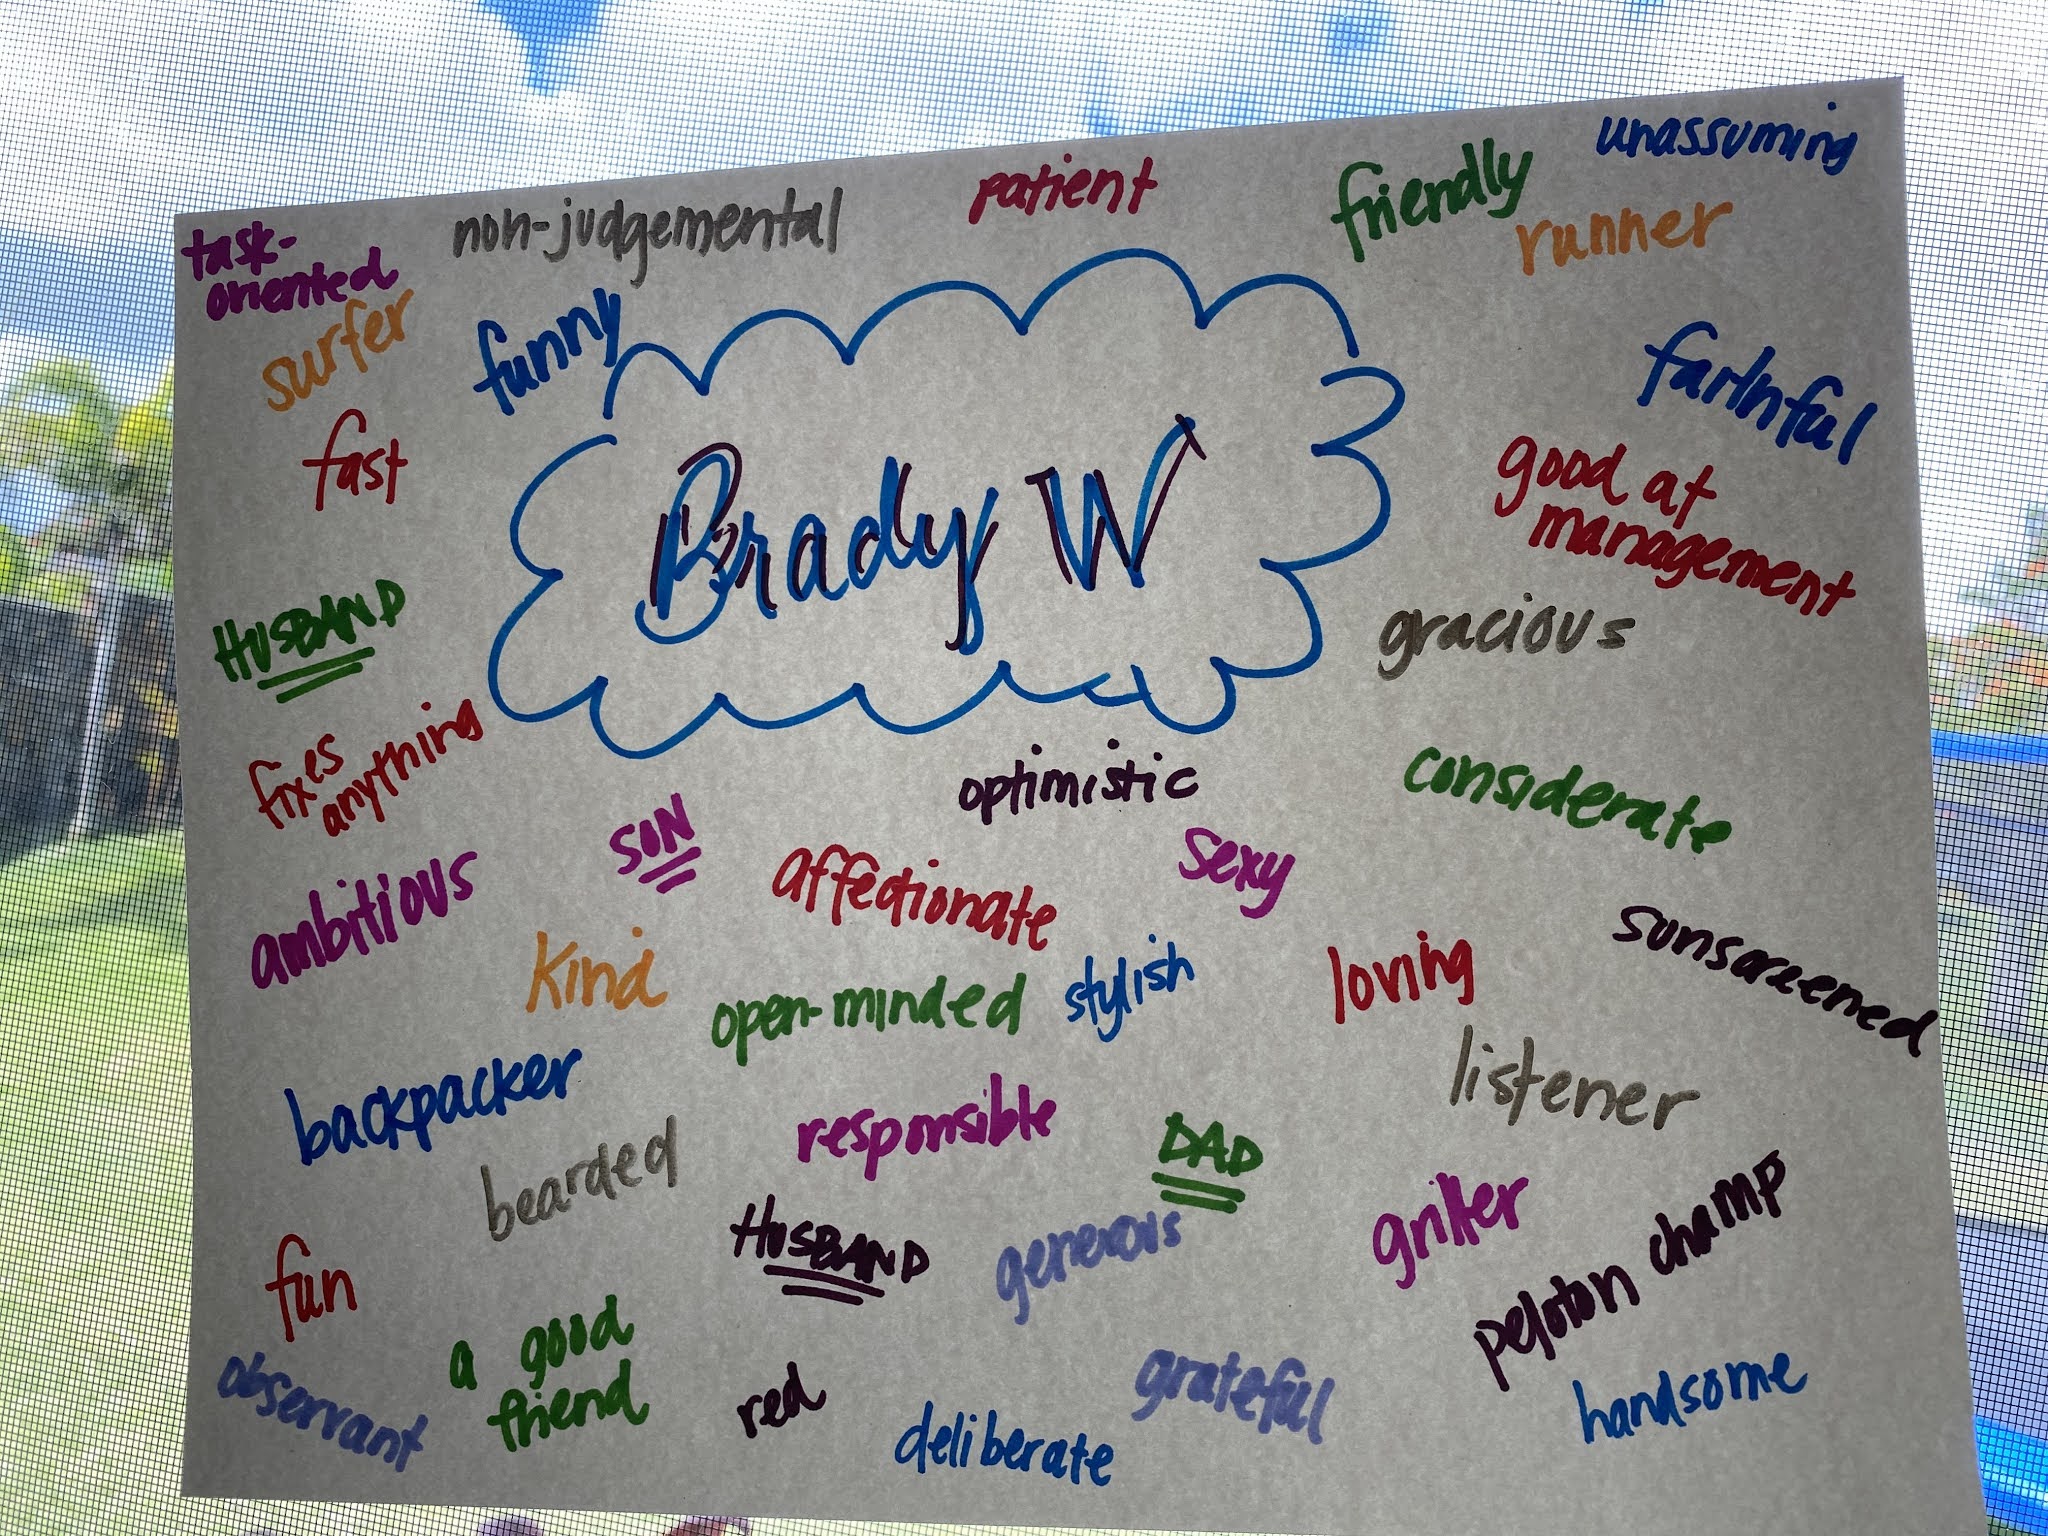 unassuming
patient
friendly
non-judgemental
runner
task-
oriented
surfer
funny
faithful
fast
good at
management
Brady W
HUSBAND
gracious
fixes
anything
optimistic
considerate
SON
affectionate
sexy
ambitious
kind
open-minded
stylish
loving
sunscreened
backpacker
listener
responsible
DAD
bearded
griller
peloton champ
HUSBAND
generous
fun
a good
friend
observant
red
grateful
handsome
deliberate